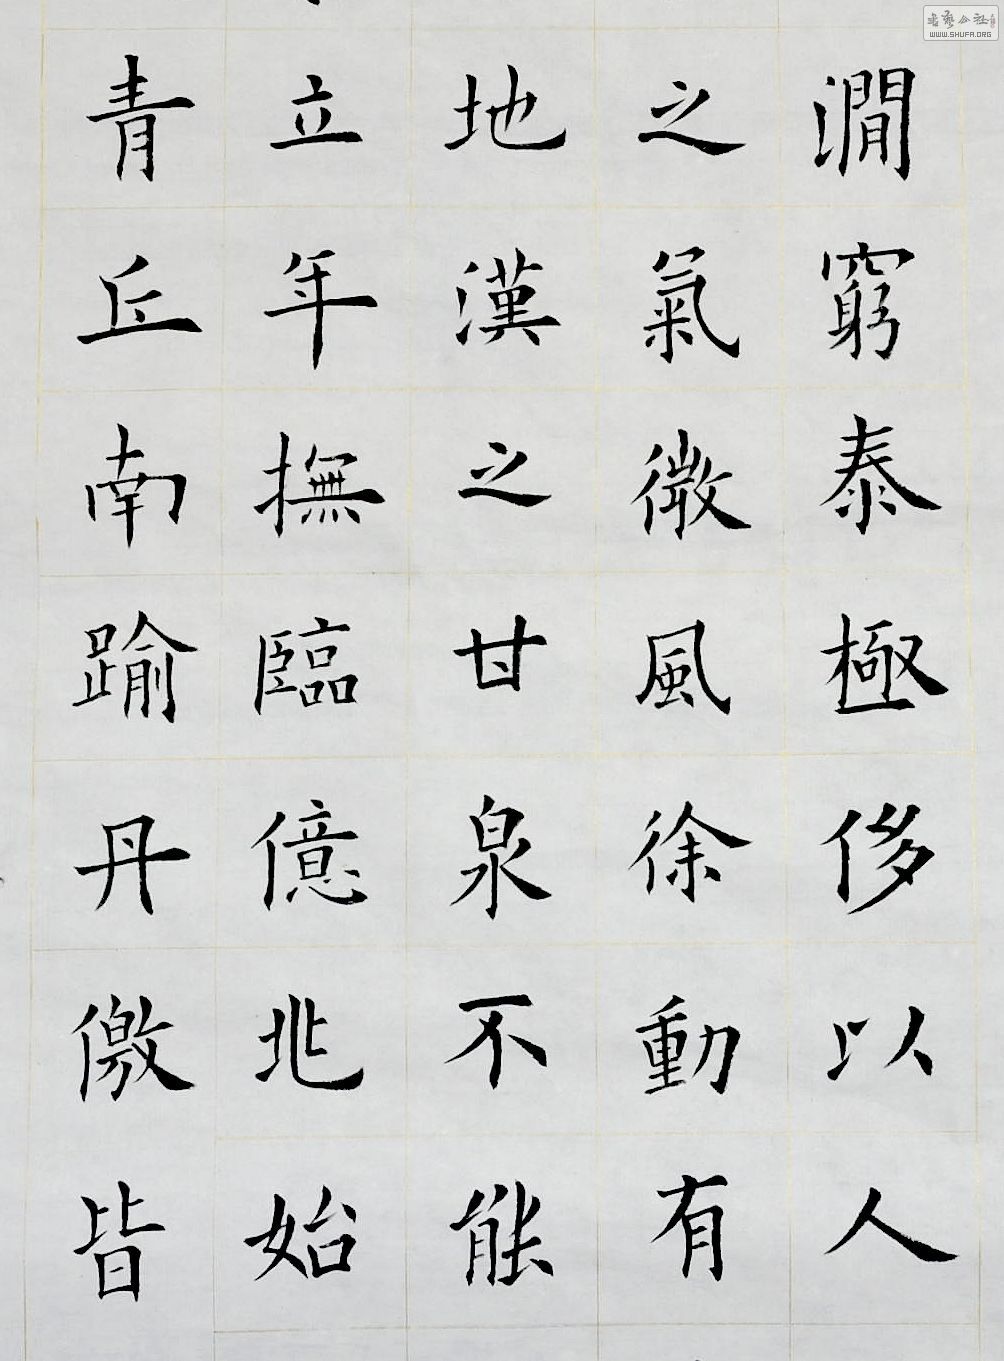 澗窮泰極侈以人
之氣微風徐動有
地漢之甘泉不能
立年撫臨億兆始
青丘南踰丹儌皆
WWW.SHUFA.ORG